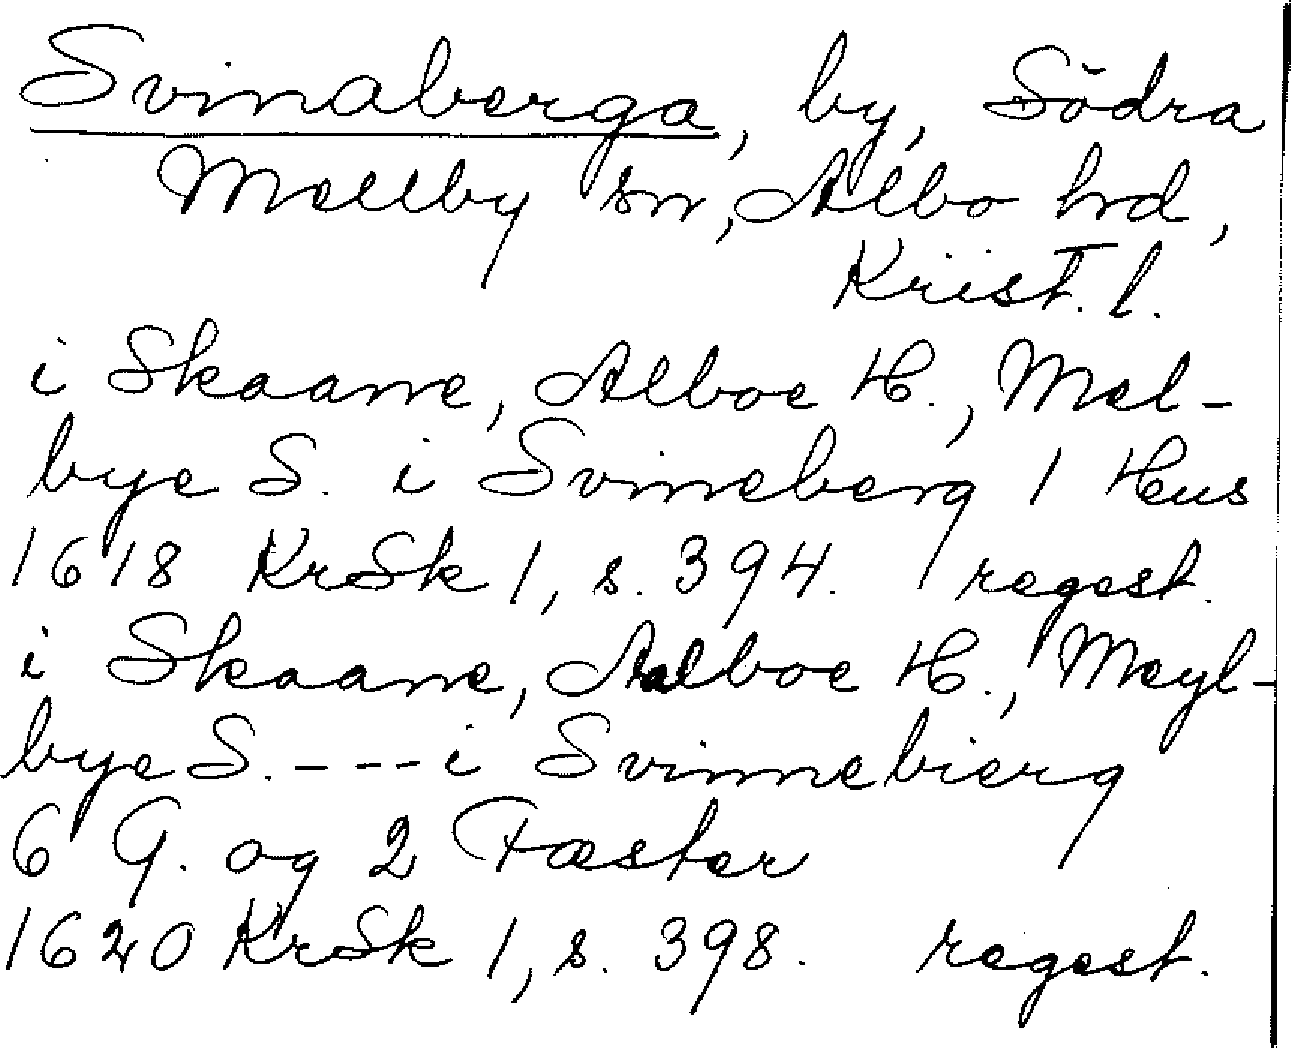 Svinaberga, by, Södra
Mellby sn, Albo hrd,
Krist. l.
i Skaane, Alboe H., Mel-
bye S. i Svineberg 1 Hus
1618 KrSk 1, s. 394. regest.
i Skaane, Aalboe H., Meyl-
bye S. - - - i Svinnebierg
6 G. og 2 Fæster
1620 KrSk 1, s. 398. regest.